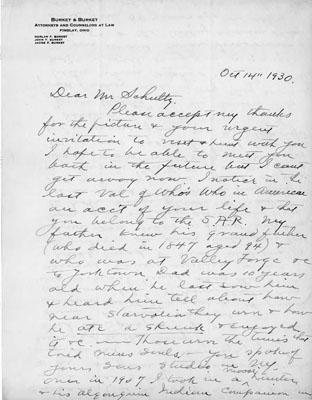 BURKET & BURKET
ATTORNEYS AND COUNSELORS AT LAW
FINDLAY, OHIO
HARLAN F. BURKET
JOHN F. BURKET
JACOB F. BURKET
Oct 14" 1930.
Dear Mr Schultz.
Please accept my thanks
for the picture & your urgent
invitation to visit & hunt with you
I hope to be able to meet you
both in the future but I cant
get away now I notice in the
last Vol of Who's Who in America
an acct of your life & that
you belong to the S.A.R. My
father knew his grandfather
(who died in 1847 aged 94) &
who was at Valley Forge &c
to Yorktown Dad was 10 years
old when he last saw him
& heard him tell about how
near starvation they were & how
he ate a & enjoyed
it &c Those were the times that
tried mens souls you spoke of
yours
once in 1907 I took in a moose hunter
& his Algonquin Indian Companion in